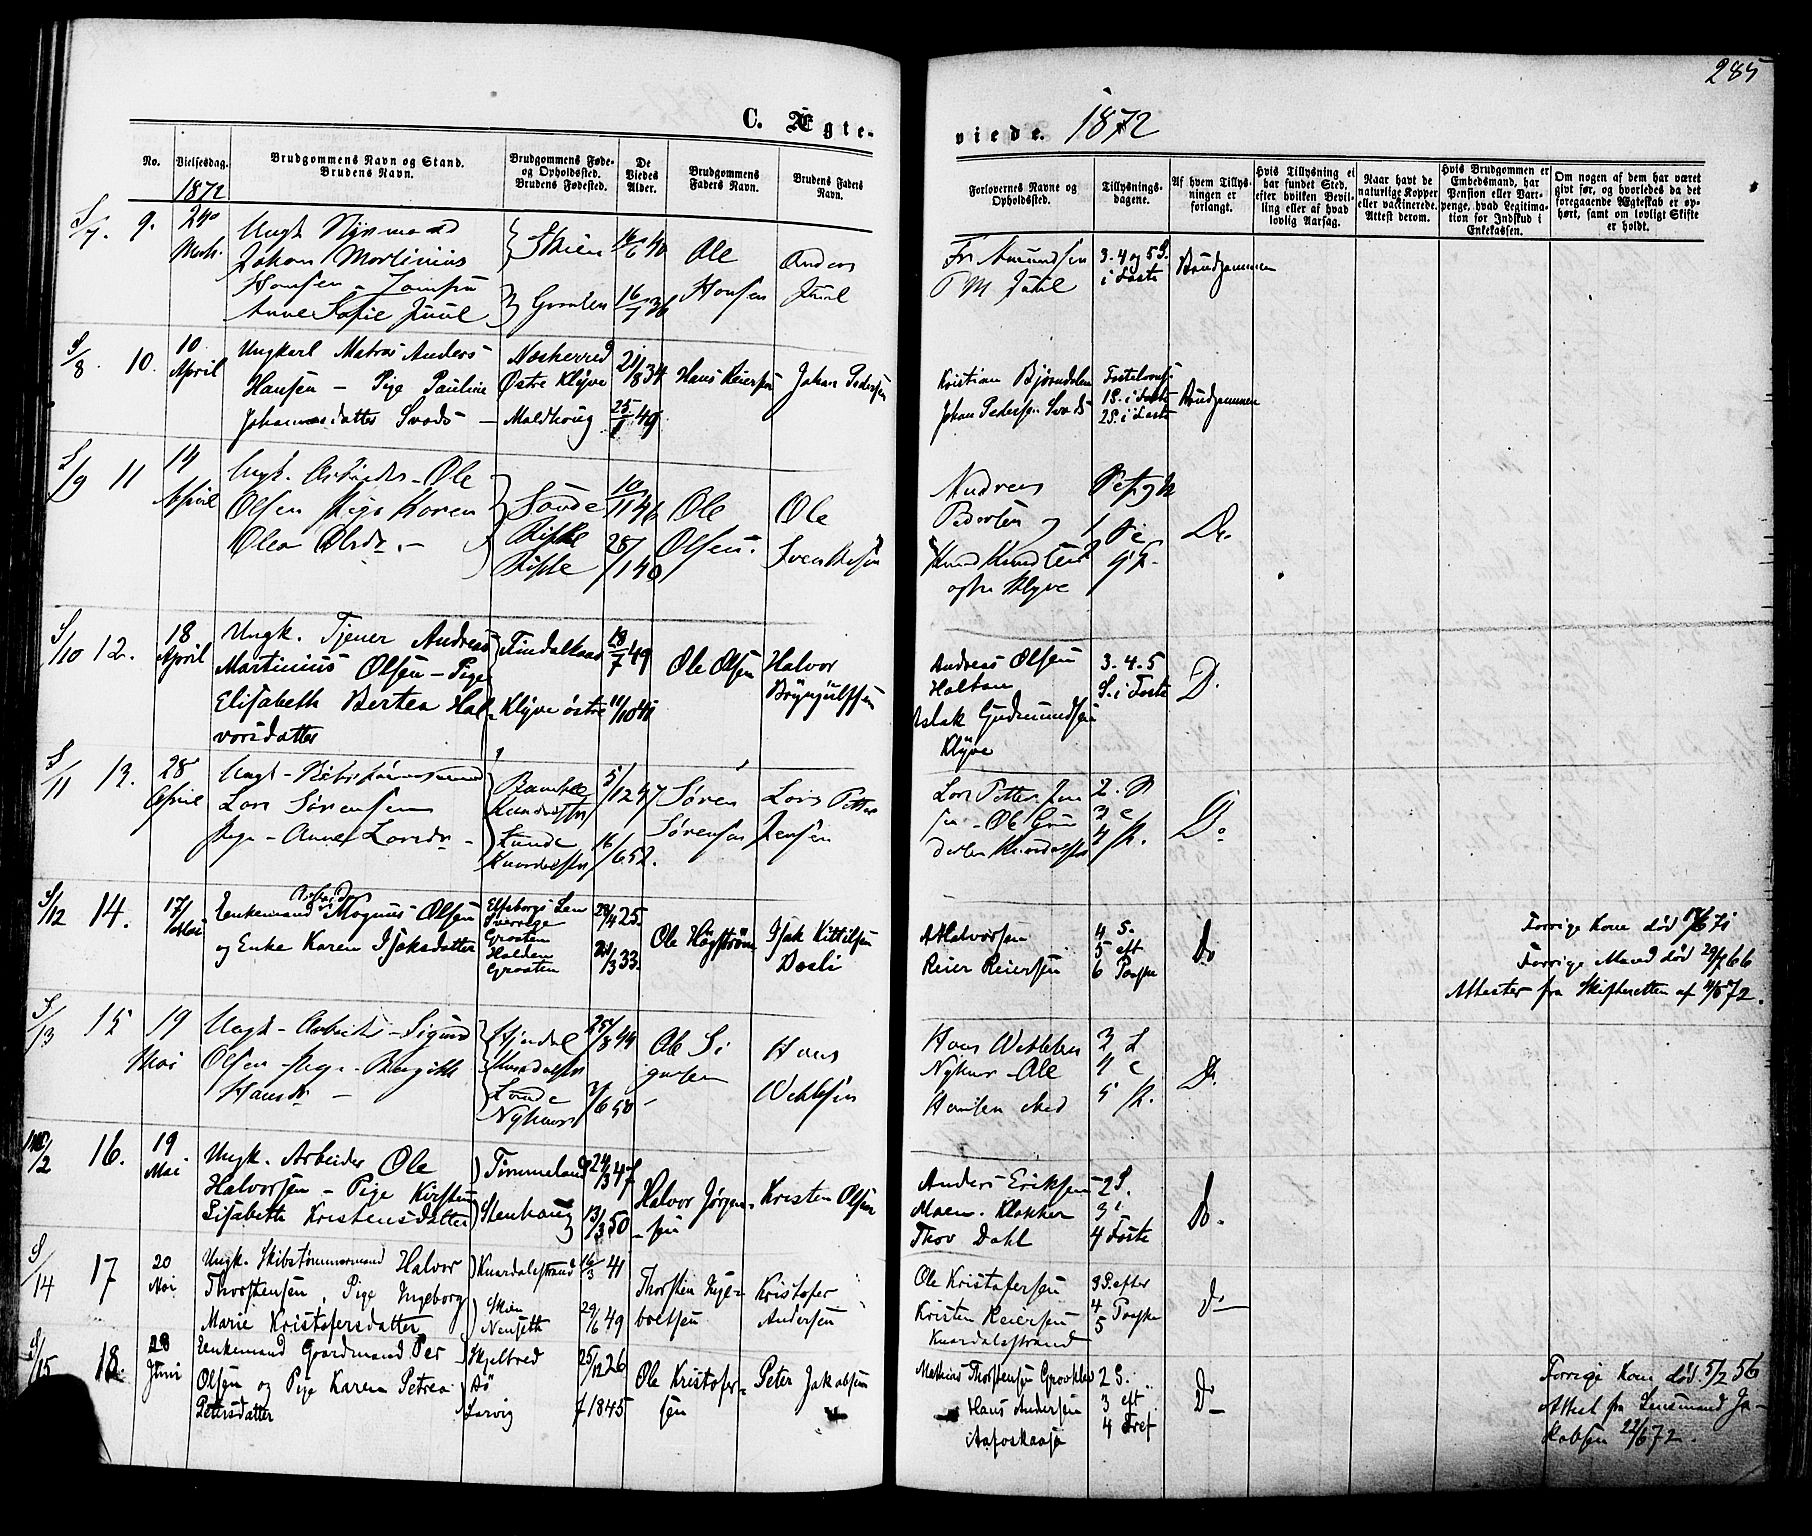 285
C. Ægte-
viede. 1872
No.
Vielsesdag.
1872
Brudgommens Navn og Stand.
Brudens Navn.
Brudgommens Føde-
og Opholdssted.
Brudens Fødested.
De
Viedes
Alder.
Brudgommens
Faders Navn.
Brudens Faders
Navn.
Forlovernes Navne og
Opholdssted.
Tillysnings-
dagene.
Af hvem Tillys-
ningen er
forlangt.
Hvis Tillysning ei
har fundet Sted,
efter hvilken Bevil-
ling eller af hvad
lovlig Aarsag.
Naar havt de
naturlige Kopper
eller vaccinerede.
Attest derom.
Hvis Brudgommen er
Embedsmand, har
Pension eller Var-
penge, hvad Legitima-
tion for Indskud i
Enkekassen.
Om nogen af dem har været
givt før, og hvorledes da det
foregaaende Ægteskab er op-
hørt, samt om lovligt Skifte
er holdt.
S/7. 9. 24 Marts.
Ungk.
Johan Martinius
Hansen – Jomfru
Anne Sofie Juul
Skien
16/6 40
Ole
Hansen
Anders
Juul
16/7 36
Fr Amundsen
P M Juul
3. 4 og 5 S.
i Faste
Brudgommen
S/8. 10. 10 April
Ungkarl Matros Anders
Hansen – Pige Pauline
Johannesdatter Svads –
Næsherred
Østre Klyve
Maldhoug
21/8 34
25/1 49
Hans Reiersen
Johan Pedersen
Kristian Bjørndalen
Johan Pedersen Svads
Fastelavns
1S. i Faste
2S. i Faste
Brudgommen
S/9 11 14 April
Ungk. Arbeider – Ole
Olsen Pige Karen
Olea Olsdr. –
10/11 46
28/1 40
Ole
Olsen.
Ole
Andreas
Knud Knudsen
østre Klyve
Do.
S/10 12. 18 April
Ungk. Tjener Andreas
Martinius Olsen – Pige
Elisabeth Bertea Hal-
vorsdatter
Findalkaas
Klyve østre
18/7 49
11/10 41
Ole Olsen
Halvor
Bryngulfsen
Andreas Olsen
Haltan
Aslak Gudmundsen
Klyve
3. 4. 5
S. i Faste
D.
S/11 13. 28 April
Ungk –
Lars Sørensen
Pige – Anne Larsdr –
Bamble
5/12 47
16/6 52.
Søren
Sørensen
Lars Petter
Jensen
Lars Petter Jen
sen – Ole
2. S
3 e
4 P.
Do
S/12 14. 17/ Mai
Arbeider
Enkemand Magnus Olsen
og Enke Karen Isaksdatter
Elfsborgs Len
Sverrige
Graaten
Holden
Graaten
28/4 25.
21/3 33.
Ole Högström
Isak Kittilsen
Dosli
A Halvorsen
Reier Reiersen
4 S.
5 eft
6 Paaske
Do
Forrige Kone død 17/6 71
Forrige Mand død 29/7 66
Attester fra Skifteretten af 11/5 72.
S/13 15 19 Mai
Ungk – Arbeider – Sigurd
Olsen – Pige – Bergithe
Hansdr –
25/8 44
7/6 50
Ole Si
gurdsen
Hans
Vetlesen
Hans Vetlesen
Ole
Hansen
3 S
4 e
5 P.
Do
2 16. 19 Mai
Ungk. Arbeider Ole
Halvorsen – Pige Kirsten
Lisabeth Kristensdatter
Tømmeland
Stenhoug
24/3 47
13/3 50
Halvor Jørgen-
sen
Kristen Olsen
Anders Eriksen
Moen. Klokker
Thov Dahl
2 S.
3 i
4 Faste
Do.
S/14 17 20 Mai
Ungk. Skibstømmermand Halvor
Thorstensen, Pige Ingeborg
Marie Kristofersdatter
Knardalsstrand
Skien
Nenseth
16/3 41
29/6 49
Thorsten Inge-
boltsen
Kristofer
Andersen
Ole Kristofersen
Kristen Reiersen
Knardalsstrand
3 S. efter
4 Paaske
5
D –
S/15 18. 28 Juni
Enkemand Gaardmand Per
Olsen og Pige Karen Petrea
Petersdatter
Skjelbred
Bø
Larvig
25/12 26
1845
Ole Kristofer-
sen
Peter Jakobsen
Mathias Thorstensen
Hans Andersen
2 S.
3 eft
4 Tref
D –
Forrige Kone død 5/2 56
Attest fra Lensmand Ja-
kobsen 22/6 72.